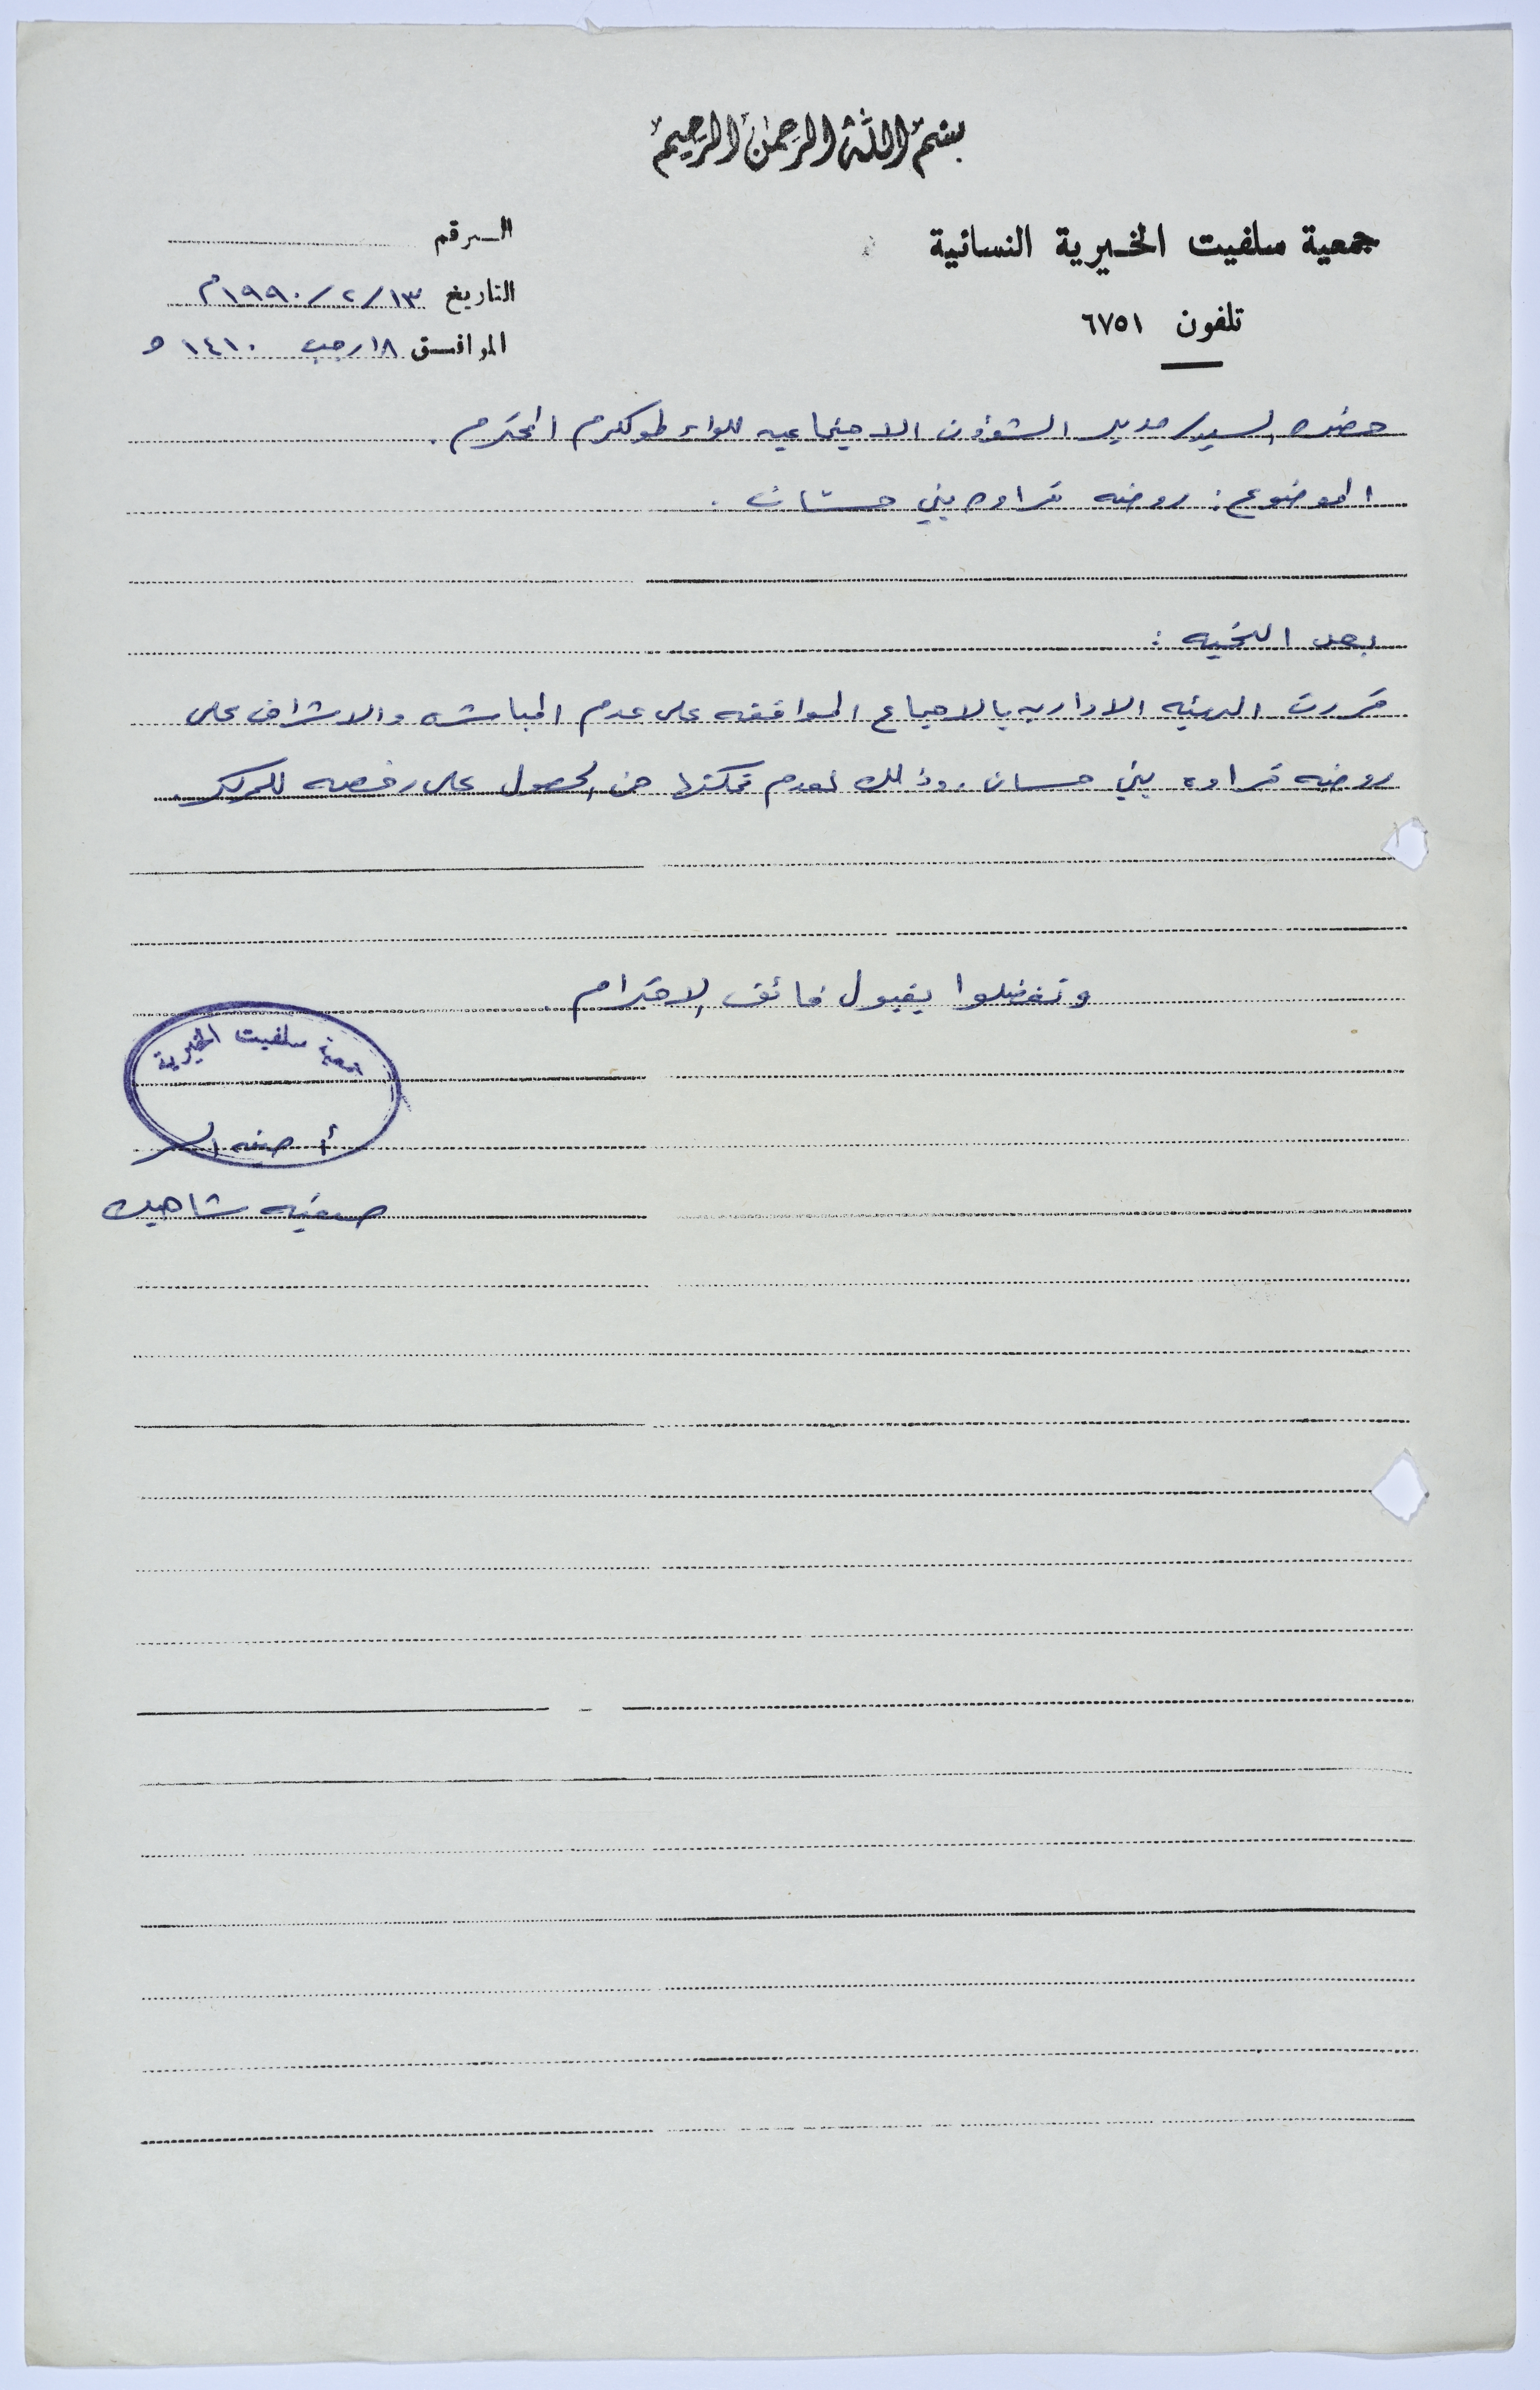 بسم الله الرحمن الرحيم
جمعية سلفيت الخيرية النسائية
تلفون ٦٧٥١
الرقم
التاريخ ١٣/٢/١٩٩٠م
الموافق ١٨ رجب ١٤١٠ هـ
حضرة السيد/ مدير الشؤون الاجتماعيه للواء طولكرم المحترم.
الموضوع: روضه قراوه بني حسان.
بعد التحيه:
قررت الهيئه الاداريه بالاجماع الموافقه على عدم المباشره والاشراف على
روضه قراوه بني حسان. وذلك لعدم تمكننا من الحصول على رخصه للمركز.
وتفضلوا بقبول فائق الاحترام.
جمعية سلفيت الخيرية
أمينه السر
صفيه شاهين